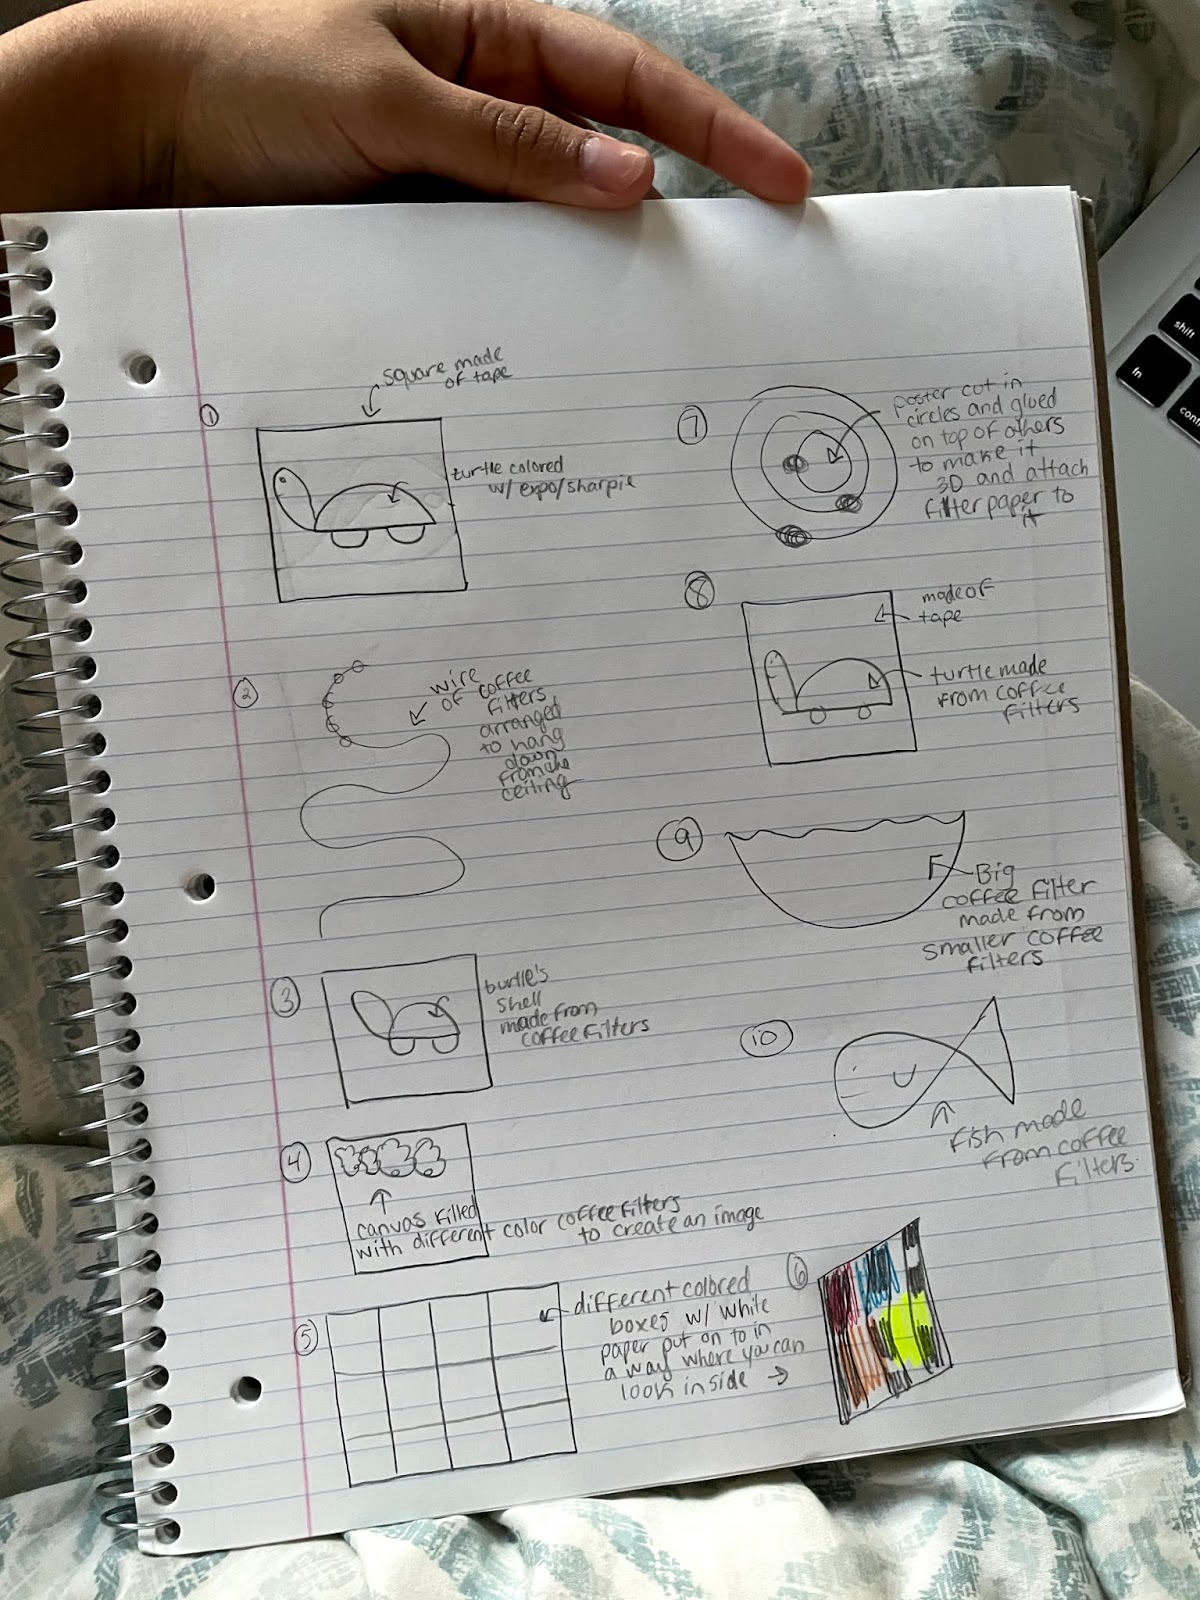 ①
square made
of tape
turtle colored
w/ expo/sharpie
②
wire
of coffee
filters
arranged
to hang
down
from the
ceiling
③
turtle's
shell
made from
coffee filters
④
canvas filled
with different color coffee filters
to create an image
⑤
different colored
boxes w/ white
paper put on to in
a way where you can
look inside →
⑥
⑦
poster cut in
circles and glued
on top of others
to make it
3D and attach
filter paper to
it
⑧
made of
tape
turtle made
from coffee
filters
⑨
Big
coffee filter
made from
smaller coffee
filters
⑩
fish made
from coffee
filters.
shift
fn
cont